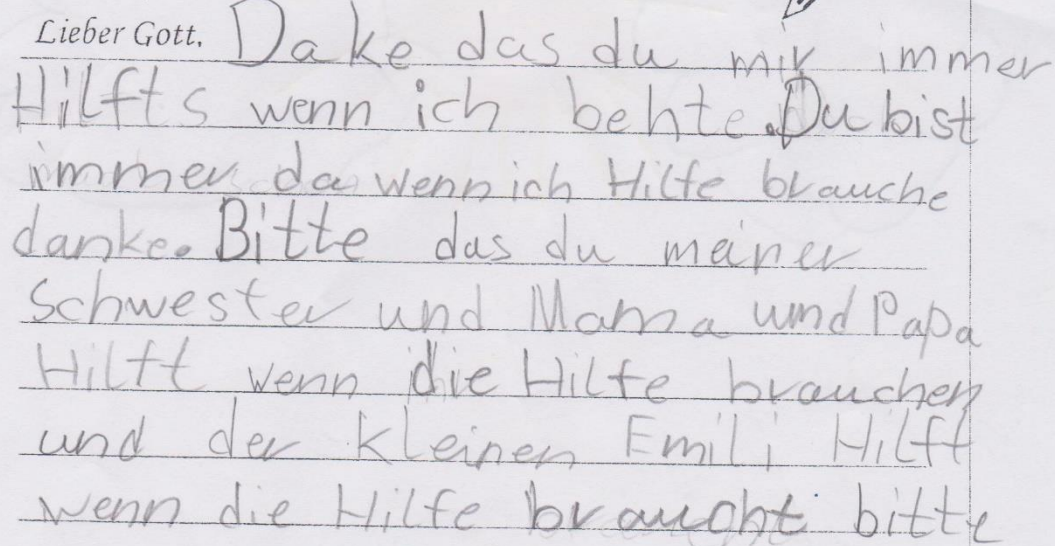 Lieber Gott, Dake das du mir immer
Hilfts wenn ich behte. Du bist
immer da wenn ich Hilfe brauche
danke. Bitte das du meiner
Schwester und Mama umd Papa
Hilft wenn die Hilfe brauchen
und der kleinen Emili Hilft
wenn die Hilfe braucht bitte